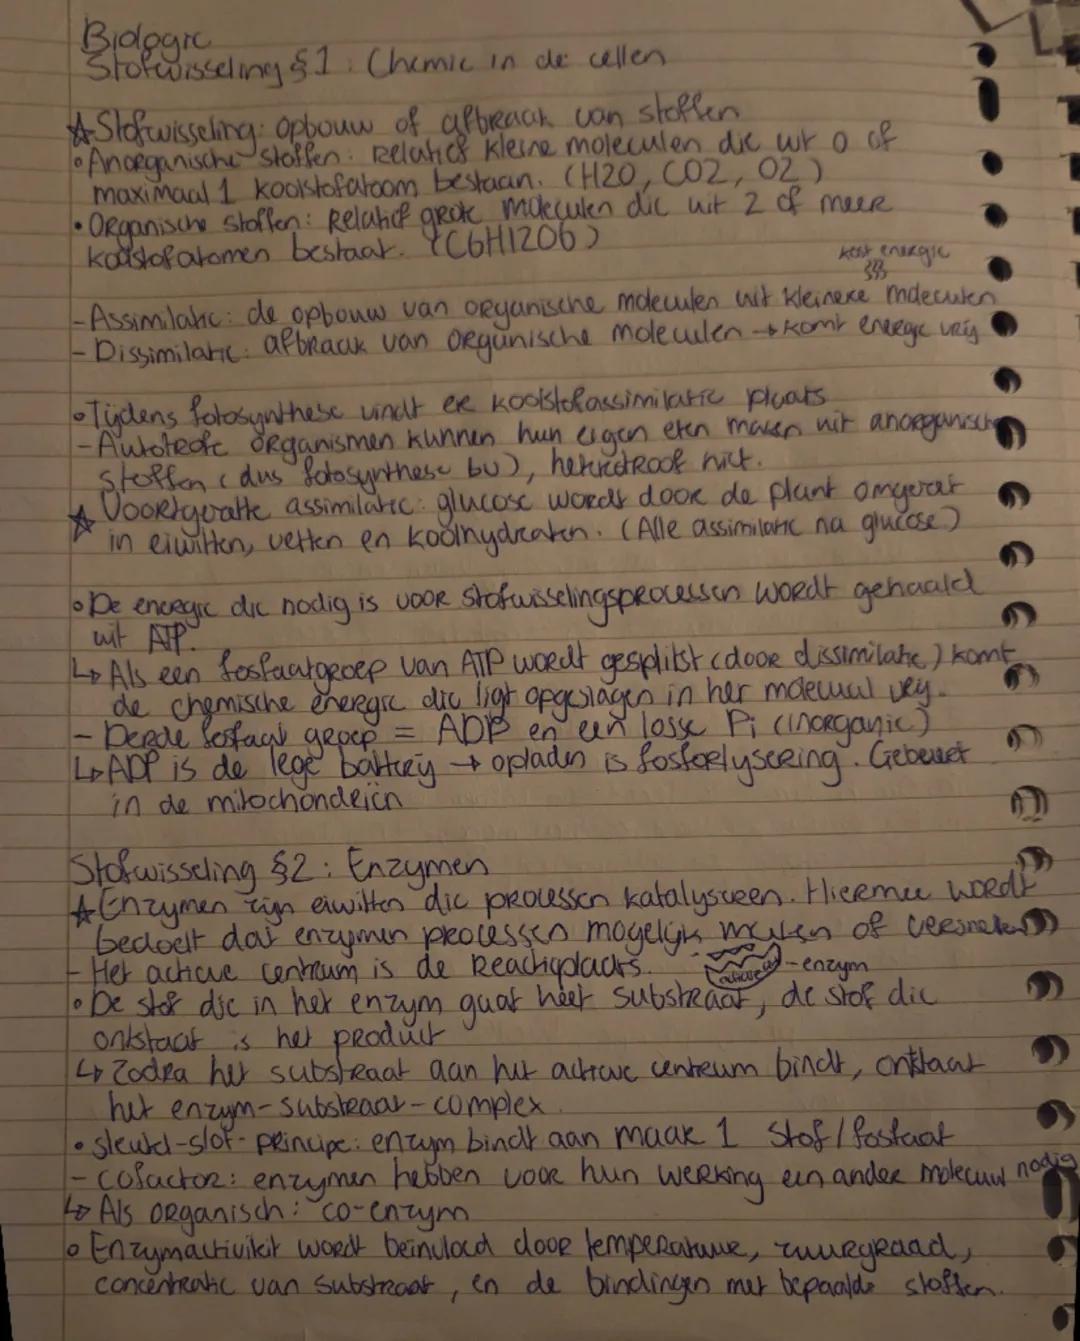 Biologie
Stofwisseling §1: Chemie in de cellen
☆ Stofwisseling: opbouw of afbraak van stoffen
• Anorganische stoffen: Relatief kleine moleculen die uit 0 of
maximaal 1 koolstofatoom bestaan. (H2O, CO2, O2)
• Organische stoffen: Relatief grote moleculen die uit 2 of meer
koolstofatomen bestaat. (C6H12O6)
kost energie
- Assimilatie: de opbouw van organische moleculen uit kleinere moleculen
- Dissimilatie: afbraak van organische moleculen → komt energie vrij
• Tijdens fotosynthese vindt er koolstofassimilatie plaats
- Autotrofe organismen kunnen hun eigen eten maken uit anorganische
stoffen (dus fotosynthese bv), heterotroof niet.
☆ Voortgezette assimilatie: glucose wordt door de plant omgezet
in eiwitten, vetten en koolhydraten. (Alle assimilatie na glucose)
• De energie die nodig is voor stofwisselingsprocessen wordt gehaald
uit ATP.
↳ Als een fosfaatgroep van ATP wordt gesplitst (door dissimilatie) komt
de chemische energie die ligt opgeslagen in het molecuul vrij.
- Derde fosfaat groep = ADP en een losse Pi (inorganic)
↳ ADP is de lege batterij → opladen is fosforlysering. Gebeurt
in de mitochondriën
Stofwisseling §2: Enzymen
☆ Enzymen zijn eiwitten die processen katalyseren. Hiermee wordt
bedoelt dat enzymen processen mogelijk maken of versnellen
- Het actieve centrum is de Reactieplaats. - enzym
• De stof die in het enzym gaat heet substraat, de stof die
ontstaat is het product
↳ Zodra het substraat aan het actieve centrum bindt, ontstaat
het enzym-substraat-complex.
• sleutel-slot-principe: enzym bindt aan maar 1 stof/fosfaat
- cofactor: enzymen hebben voor hun werking een ander molecuul nodig
↳ Als organisch: co-enzym
• Enzymactiviteit wordt beïnvloed door temperatuur, zuurgraad,
concentratie van substraat, en de bindingen met bepaalde stoffen.